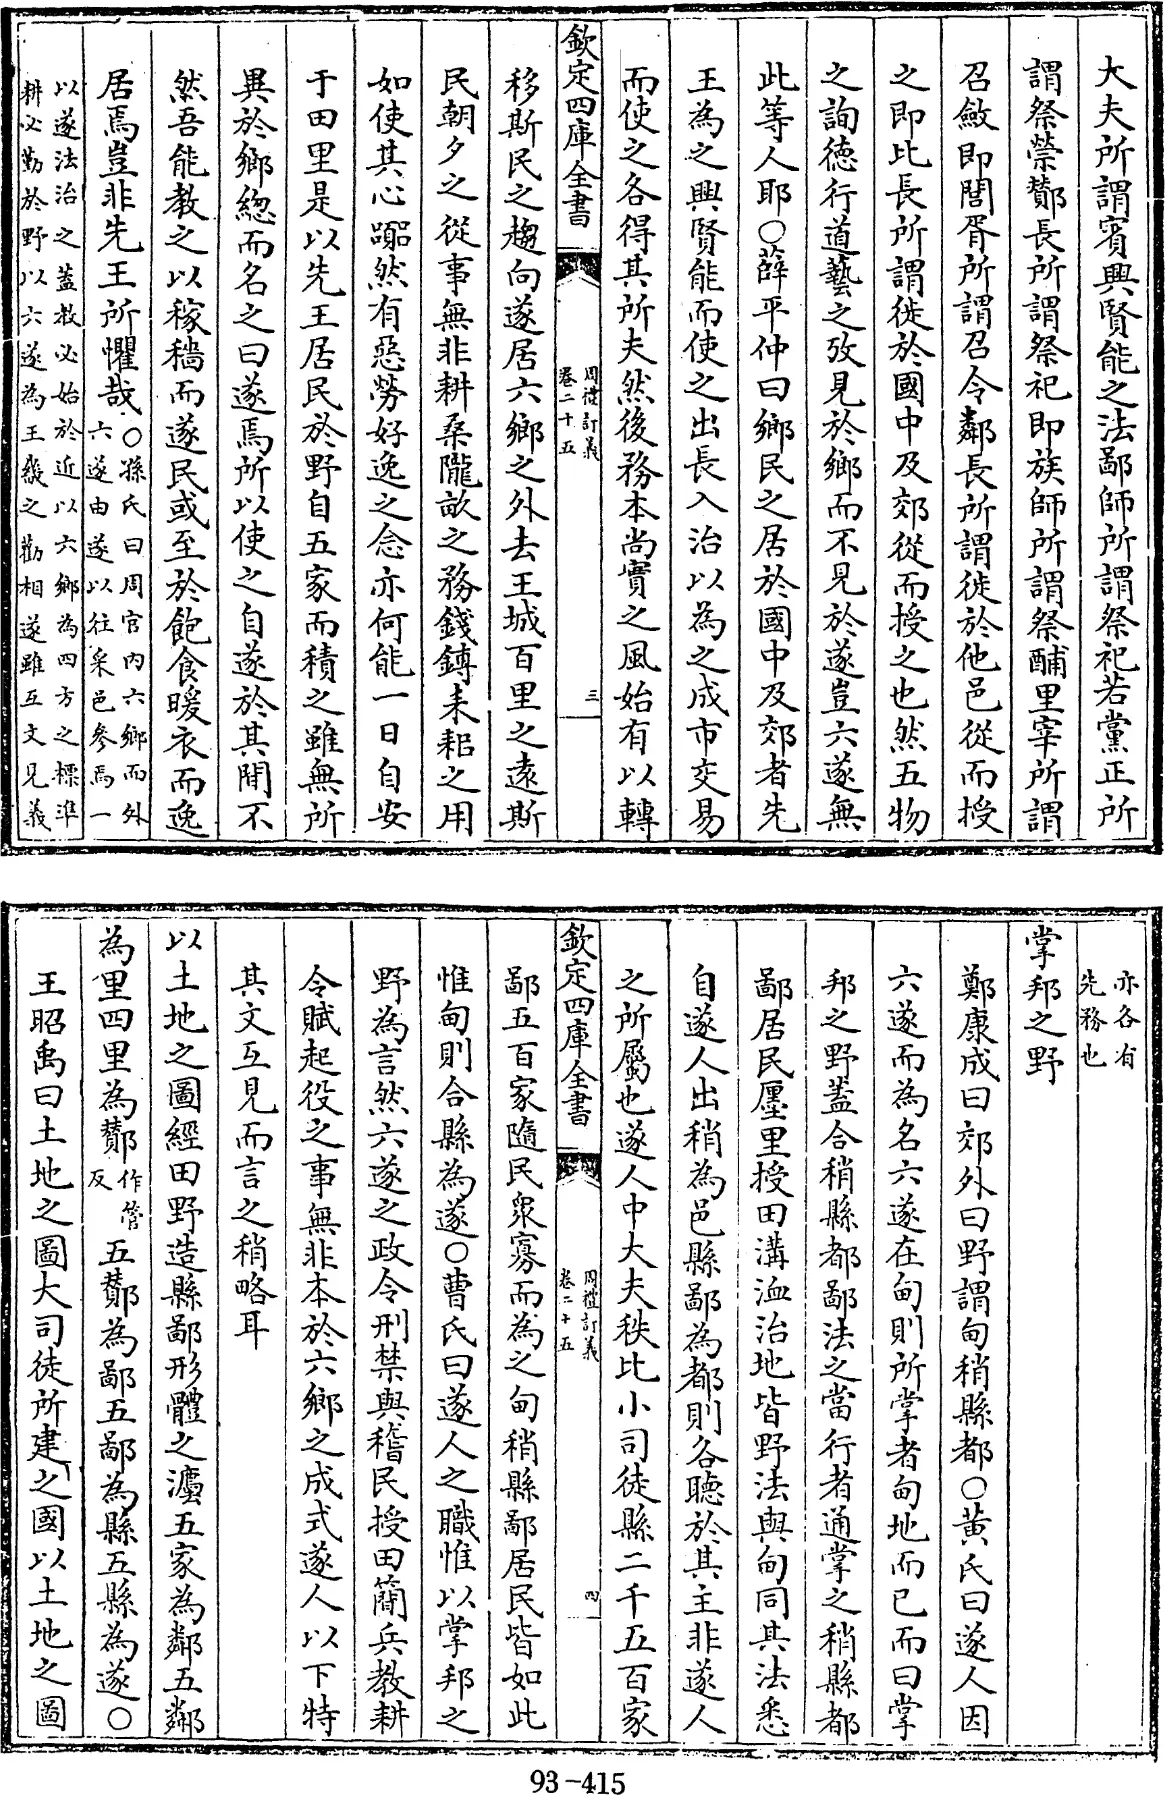 大夫所謂賓興賢能之法鄙師所謂祭祀若黨正所
謂祭禜酇長所謂祭祀即族師所謂祭酺里宰所謂
召斂即閭胥所謂召令鄰長所謂徙於他邑從而授
之即比長所謂徙於國中及郊從而授之也然五物
之詢徳行道藝之攷見於鄉而不見於遂豈六遂無
此等人耶○薛平仲曰鄉民之居於國中及郊者先
王為之興賢能而使之出長入治以為之成市交易
而使之各得其所夫然後務本尚實之風始有以轉
欽定四庫全書
周禮訂義
卷二十五
三
移斯民之趨向遂居六鄉之外去王城百里之遠斯
民朝夕之從事無非耕桑隴畝之務錢鎛耒耜之用
如使其心嚣然有惡勞好逸之念亦何能一日自安
于田里是以先王居民於野自五家而積之雖無所
異於鄉總而名之曰遂焉所以使之自遂於其間不
然吾能教之以稼穡而遂民或至於飽食暖衣而逸
居焉豈非先王所懼哉○孫氏曰周官内六鄉而外
六遂由遂以往采邑參焉一
以遂法治之蓋教必始於近以六鄉為四方之標準
耕必勤於野以六遂為王畿之勸相遂雖互文見義
亦各有
先務也
掌邦之野
鄭康成曰郊外曰野謂甸稍縣都○黄氏曰遂人因
六遂而為名六遂在甸則所掌者甸地而已而曰掌
邦之野蓋合稍縣都鄙法之當行者通掌之稍縣都
鄙居民㕓里授田溝洫治地皆野法與甸同其法悉
自遂人出稍為邑縣鄙為都則各聽於其主非遂人
之所屬也遂人中大夫秩比小司徒縣二千五百家
欽定四庫全書
周禮訂義
卷二十五
四
鄙五百家隨民衆寡而為之甸稍縣鄙居民皆如此
惟甸則合縣為遂○曹氏曰遂人之職惟以掌邦之
野為言然六遂之政令刑禁與稽民授田簡兵教耕
令賦起役之事無非本於六鄉之成式遂人以下特
其文互見而言之稍略耳
以土地之圖經田野造縣鄙形體之灋五家為鄰五鄰
為里四里為酇作管反五酇為鄙五鄙為縣五縣為遂○
王昭禹曰土地之圖大司徒所建之國以土地之圖
93-415